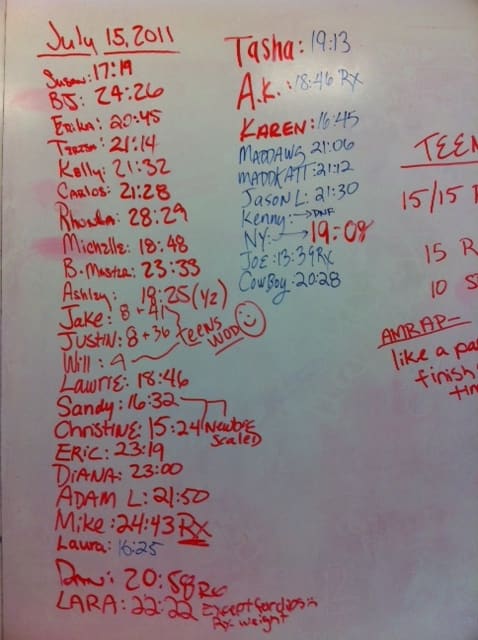 July 15, 2011
Susan: 17:19
BJ: 24:26
Erika: 20:45
Teresa: 21:14
Kelly: 21:32
Carlos: 21:28
Rhonda: 28:29
Michelle: 18:48
B. Master: 23:33
Ashley: 18:25 (1/2)
Jake: 8 + 41
Justin: 8 + 36
Will: 9
Teens
WOD
Lawrie: 18:46
Sandy: 16:32
Christine: 15:24
Newbie
Scaled
Eric: 23:19
Diana: 23:00
Adam L: 21:50
Mike: 24:43 Rx
Laura: 16:25
Drew: 20:58 Rx
LARA: 22:22 Except
Rx weight
Tasha: 19:13
A.K.: 18:46 Rx
KAREN: 16:45
MADDAWG 21:06
MADDKATT: 21:12
Jason L: 21:30
Kenny: → DNF
NY: → 19:08
JOE: 13:39 Rx
CowBoy: 20:28
TEEN
15/15 R
15 R
10 S
AMRAP-
like a pa
finish
tim